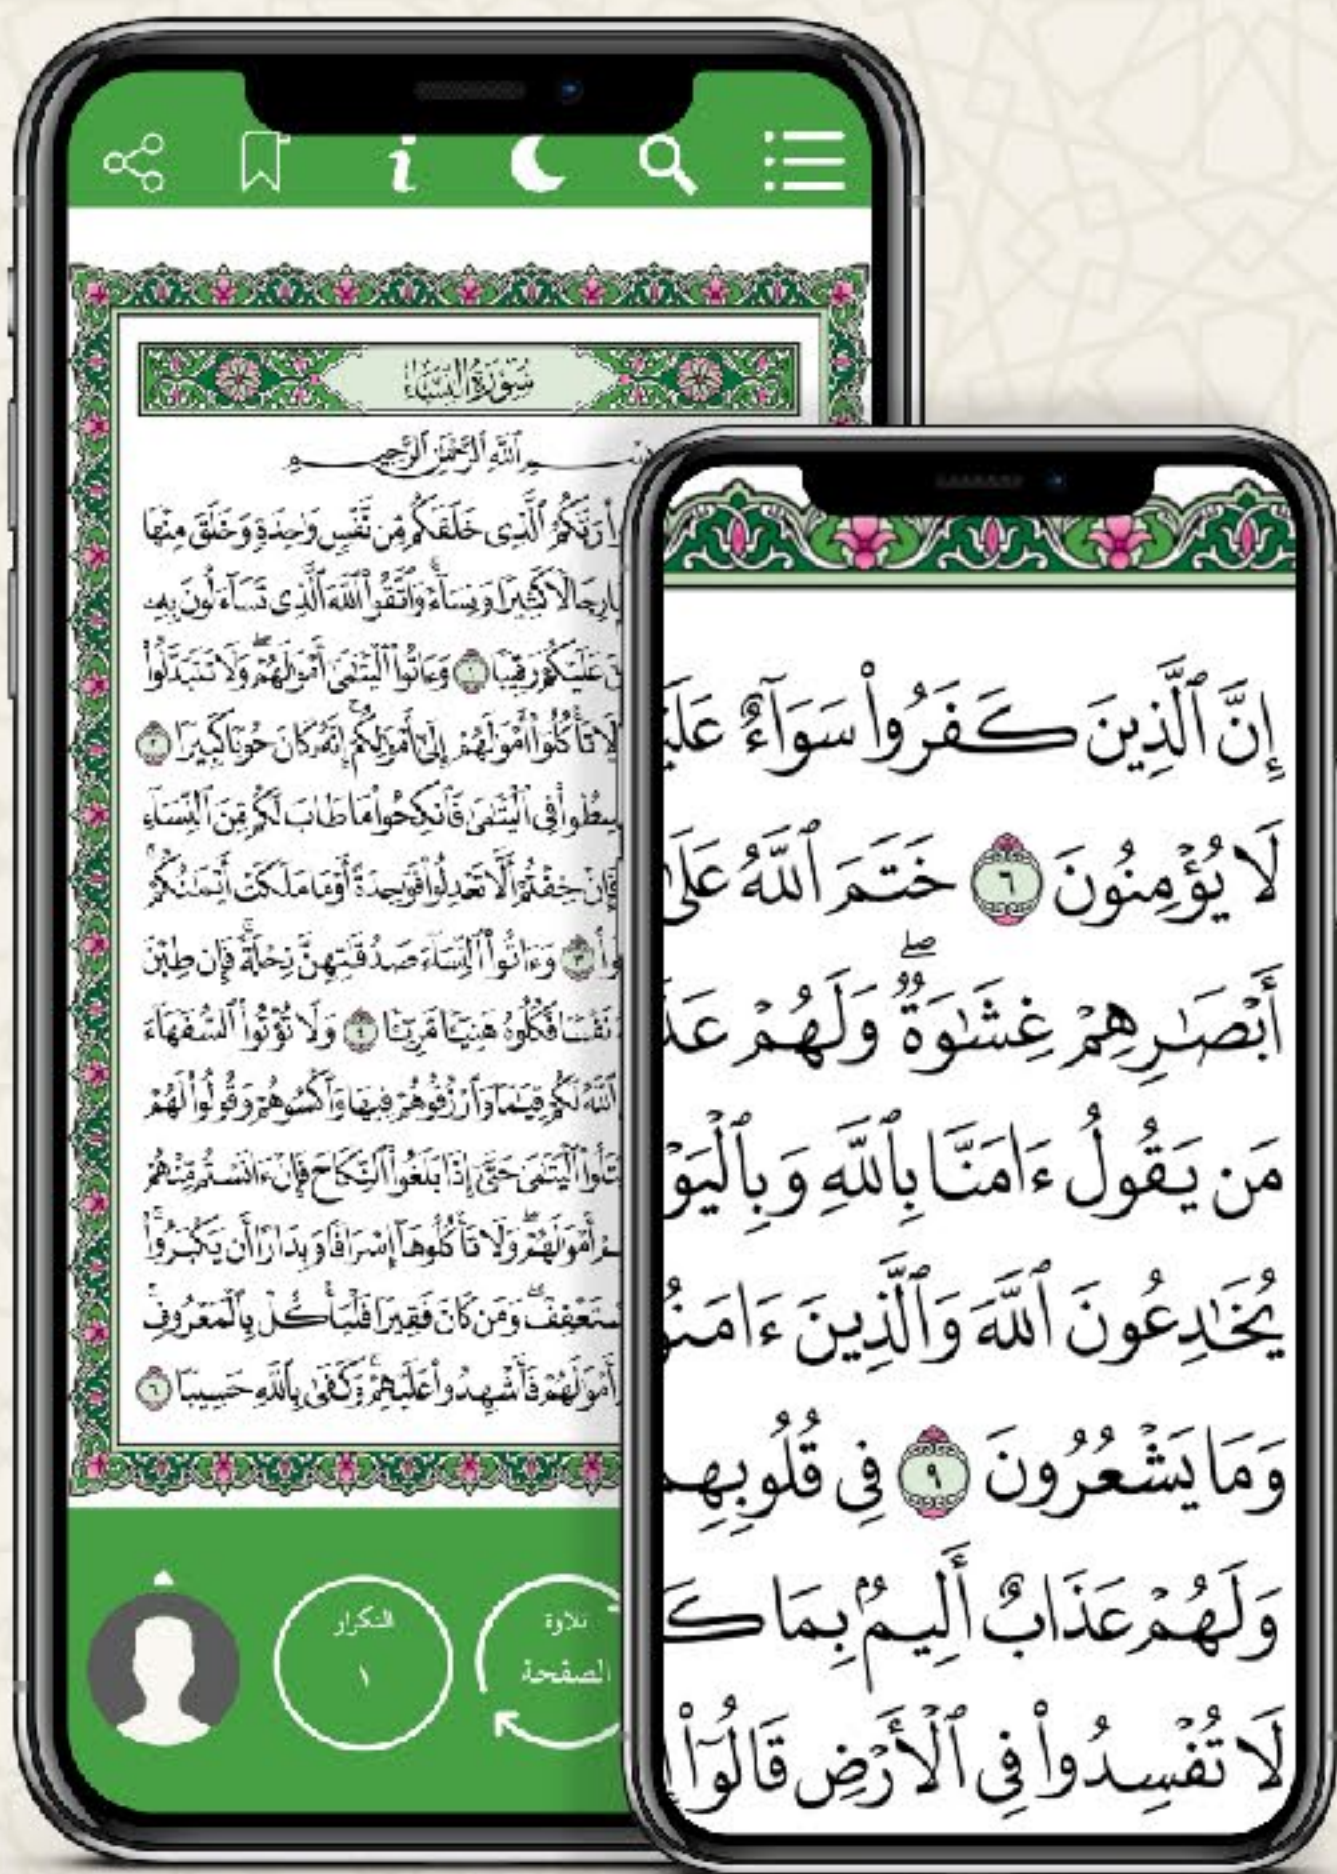 سُورَةُ النِّسَاءِ
بِسْمِ ٱللَّهِ ٱلرَّحْمَٰنِ ٱلرَّحِيمِ
رَبَّكُمُ ٱلَّذِى خَلَقَكُم مِّن نَّفْسٍ وَٰحِدَةٍ وَخَلَقَ مِنْهَا
رِجَالًا كَثِيرًا وَنِسَآءً ۚ وَٱتَّقُوا۟ ٱللَّهَ ٱلَّذِى تَسَآءَلُونَ بِهِۦ
عَلَيْكُمْ رَقِيبًا ١ وَءَاتُوا۟ ٱلْيَتَٰمَىٰٓ أَمْوَٰلَهُمْ ۖ وَلَا تَتَبَدَّلُوا۟
تَأْكُلُوٓا۟ أَمْوَٰلَهُمْ إِلَىٰٓ أَمْوَٰلِكُمْ ۚ إِنَّهُۥ كَانَ حُوبًا كَبِيرًا ٢
فِى ٱلْيَتَٰمَىٰ فَٱنكِحُوا۟ مَا طَابَ لَكُم مِّنَ ٱلنِّسَآءِ
فَإِنْ خِفْتُمْ أَلَّا تَعْدِلُوا۟ فَوَٰحِدَةً أَوْ مَا مَلَكَتْ أَيْمَٰنُكُمْ ۚ
٣ وَءَاتُوا۟ ٱلنِّسَآءَ صَدُقَٰتِهِنَّ نِحْلَةً ۚ فَإِن طِبْنَ
نَفْسًا فَكُلُوهُ هَنِيٓـًٔا مَّرِيٓـًٔا ٤ وَلَا تُؤْتُوا۟ ٱلسُّفَهَآءَ
ٱللَّهُ لَكُمْ قِيَٰمًا وَٱرْزُقُوهُمْ فِيهَا وَٱكْسُوهُمْ وَقُولُوا۟ لَهُمْ
ٱلْيَتَٰمَىٰ حَتَّىٰٓ إِذَا بَلَغُوا۟ ٱلنِّكَاحَ فَإِنْ ءَانَسْتُم مِّنْهُمْ
أَمْوَٰلَهُمْ ۖ وَلَا تَأْكُلُوهَآ إِسْرَافًا وَبِدَارًا أَن يَكْبَرُوا۟ ۚ
وَمَن كَانَ فَقِيرًا فَلْيَأْكُلْ بِٱلْمَعْرُوفِ ۚ
أَمْوَٰلَهُمْ فَأَشْهِدُوا۟ عَلَيْهِمْ ۚ وَكَفَىٰ بِٱللَّهِ حَسِيبًا ٦
تلاوة
الصفحة
التكرار
١
إِنَّ ٱلَّذِينَ كَفَرُوا۟ سَوَآءٌ
لَا يُؤْمِنُونَ ٦ خَتَمَ ٱللَّهُ عَلَىٰ
أَبْصَٰرِهِمْ غِشَٰوَةٌ ۖ وَلَهُمْ
مَن يَقُولُ ءَامَنَّا بِٱللَّهِ
يُخَٰدِعُونَ ٱللَّهَ وَٱلَّذِينَ
وَمَا يَشْعُرُونَ ٩ فِى قُلُوبِهِم
وَلَهُمْ عَذَابٌ أَلِيمٌۢ بِمَا
لَا تُفْسِدُوا۟ فِى ٱلْأَرْضِ قَالُوٓا۟